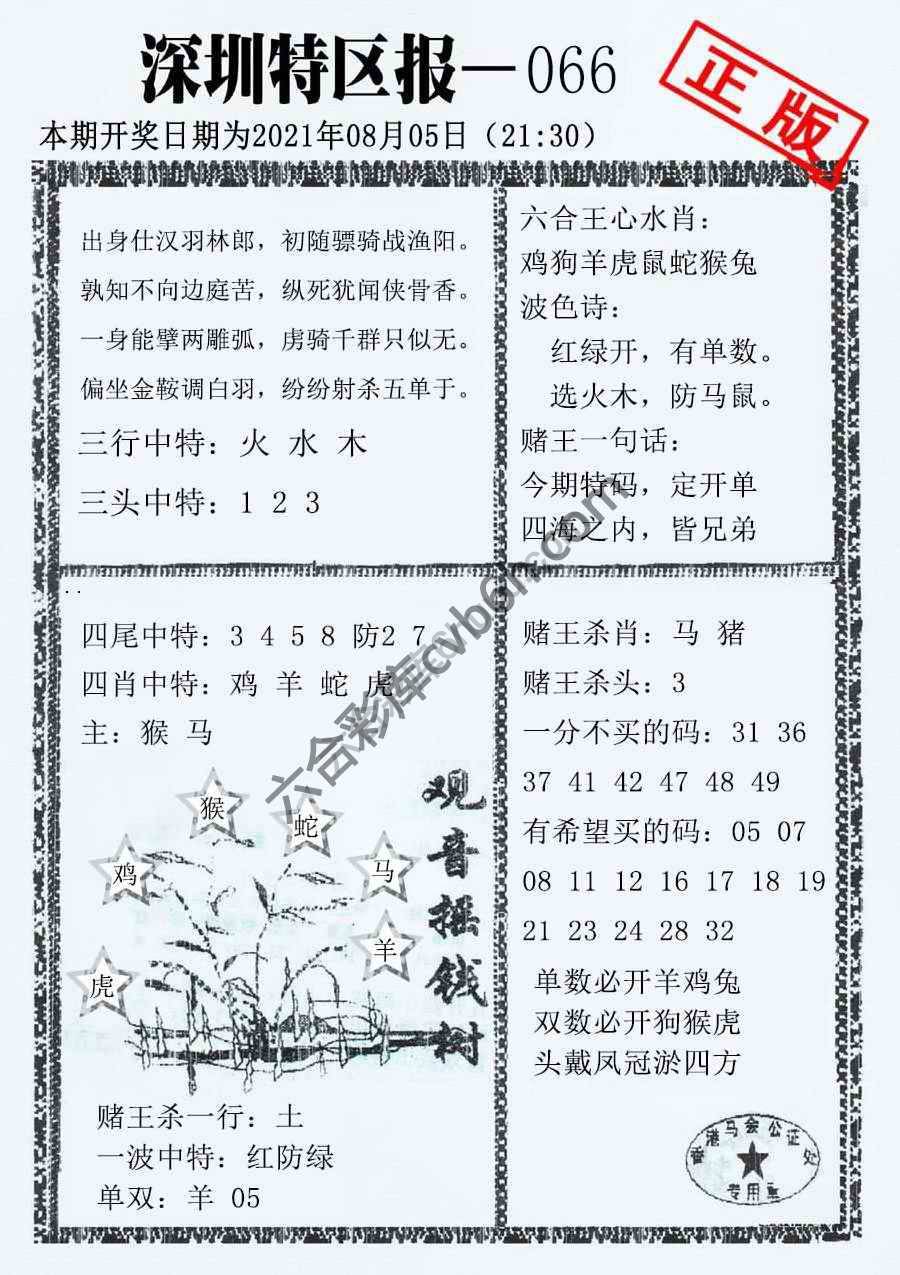 深圳特区报—066
正版
本期开奖日期为2021年08月05日（21:30）
出身仕汉羽林郎，初随骠骑战渔阳。
孰知不向边庭苦，纵死犹闻侠骨香。
一身能擘两雕弧，虏骑千群只似无。
偏坐金鞍调白羽，纷纷射杀五单于。
三行中特：火 水 木
三头中特：1 2 3
六合王心水肖：
鸡狗羊虎鼠蛇猴兔
波色诗：
红绿开，有单数。
选火木，防马鼠。
赌王一句话：
今期特码，定开单
四海之内，皆兄弟
四尾中特：3 4 5 8 防2 7
四肖中特：鸡 羊 蛇 虎
主：猴 马
猴
蛇
鸡
马
羊
虎
观音摇钱树
赌王杀一行：土
一波中特：红防绿
单双：羊 05
赌王杀肖：马 猪
赌王杀头：3
一分不买的码：31 36
37 41 42 47 48 49
有希望买的码：05 07
08 11 12 16 17 18 19
21 23 24 28 32
单数必开羊鸡兔
双数必开狗猴虎
头戴凤冠淤四方
香港马会公证处
专用章
六合彩库cvb6h.com